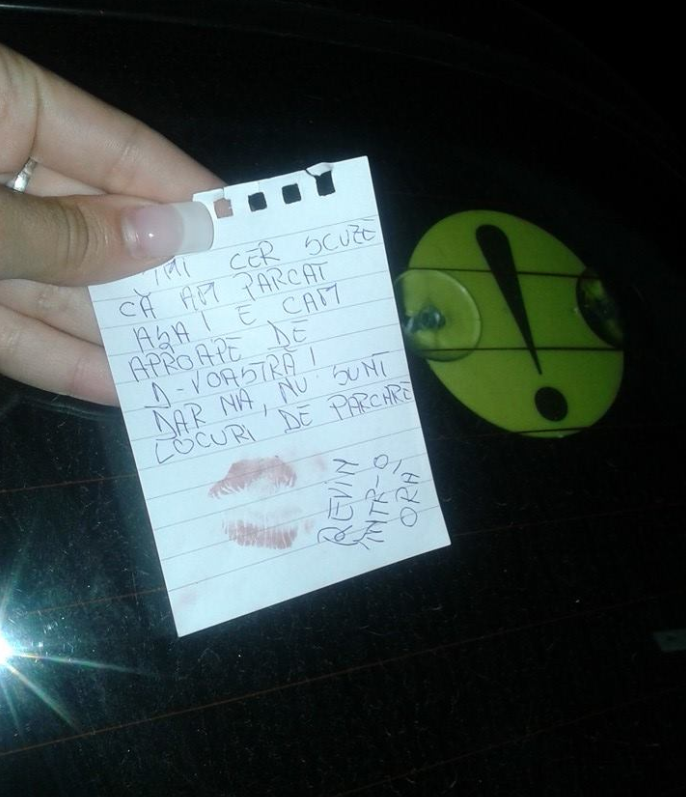 ÎMI CER SCUZE
CĂ AM PARCAT
AȘA! E CAM
APROAPE DE
D-VOASTRĂ!
DAR NA, NU SUNT
LOCURI DE PARCARE
REVIN
INTR-O
ORĂ
!